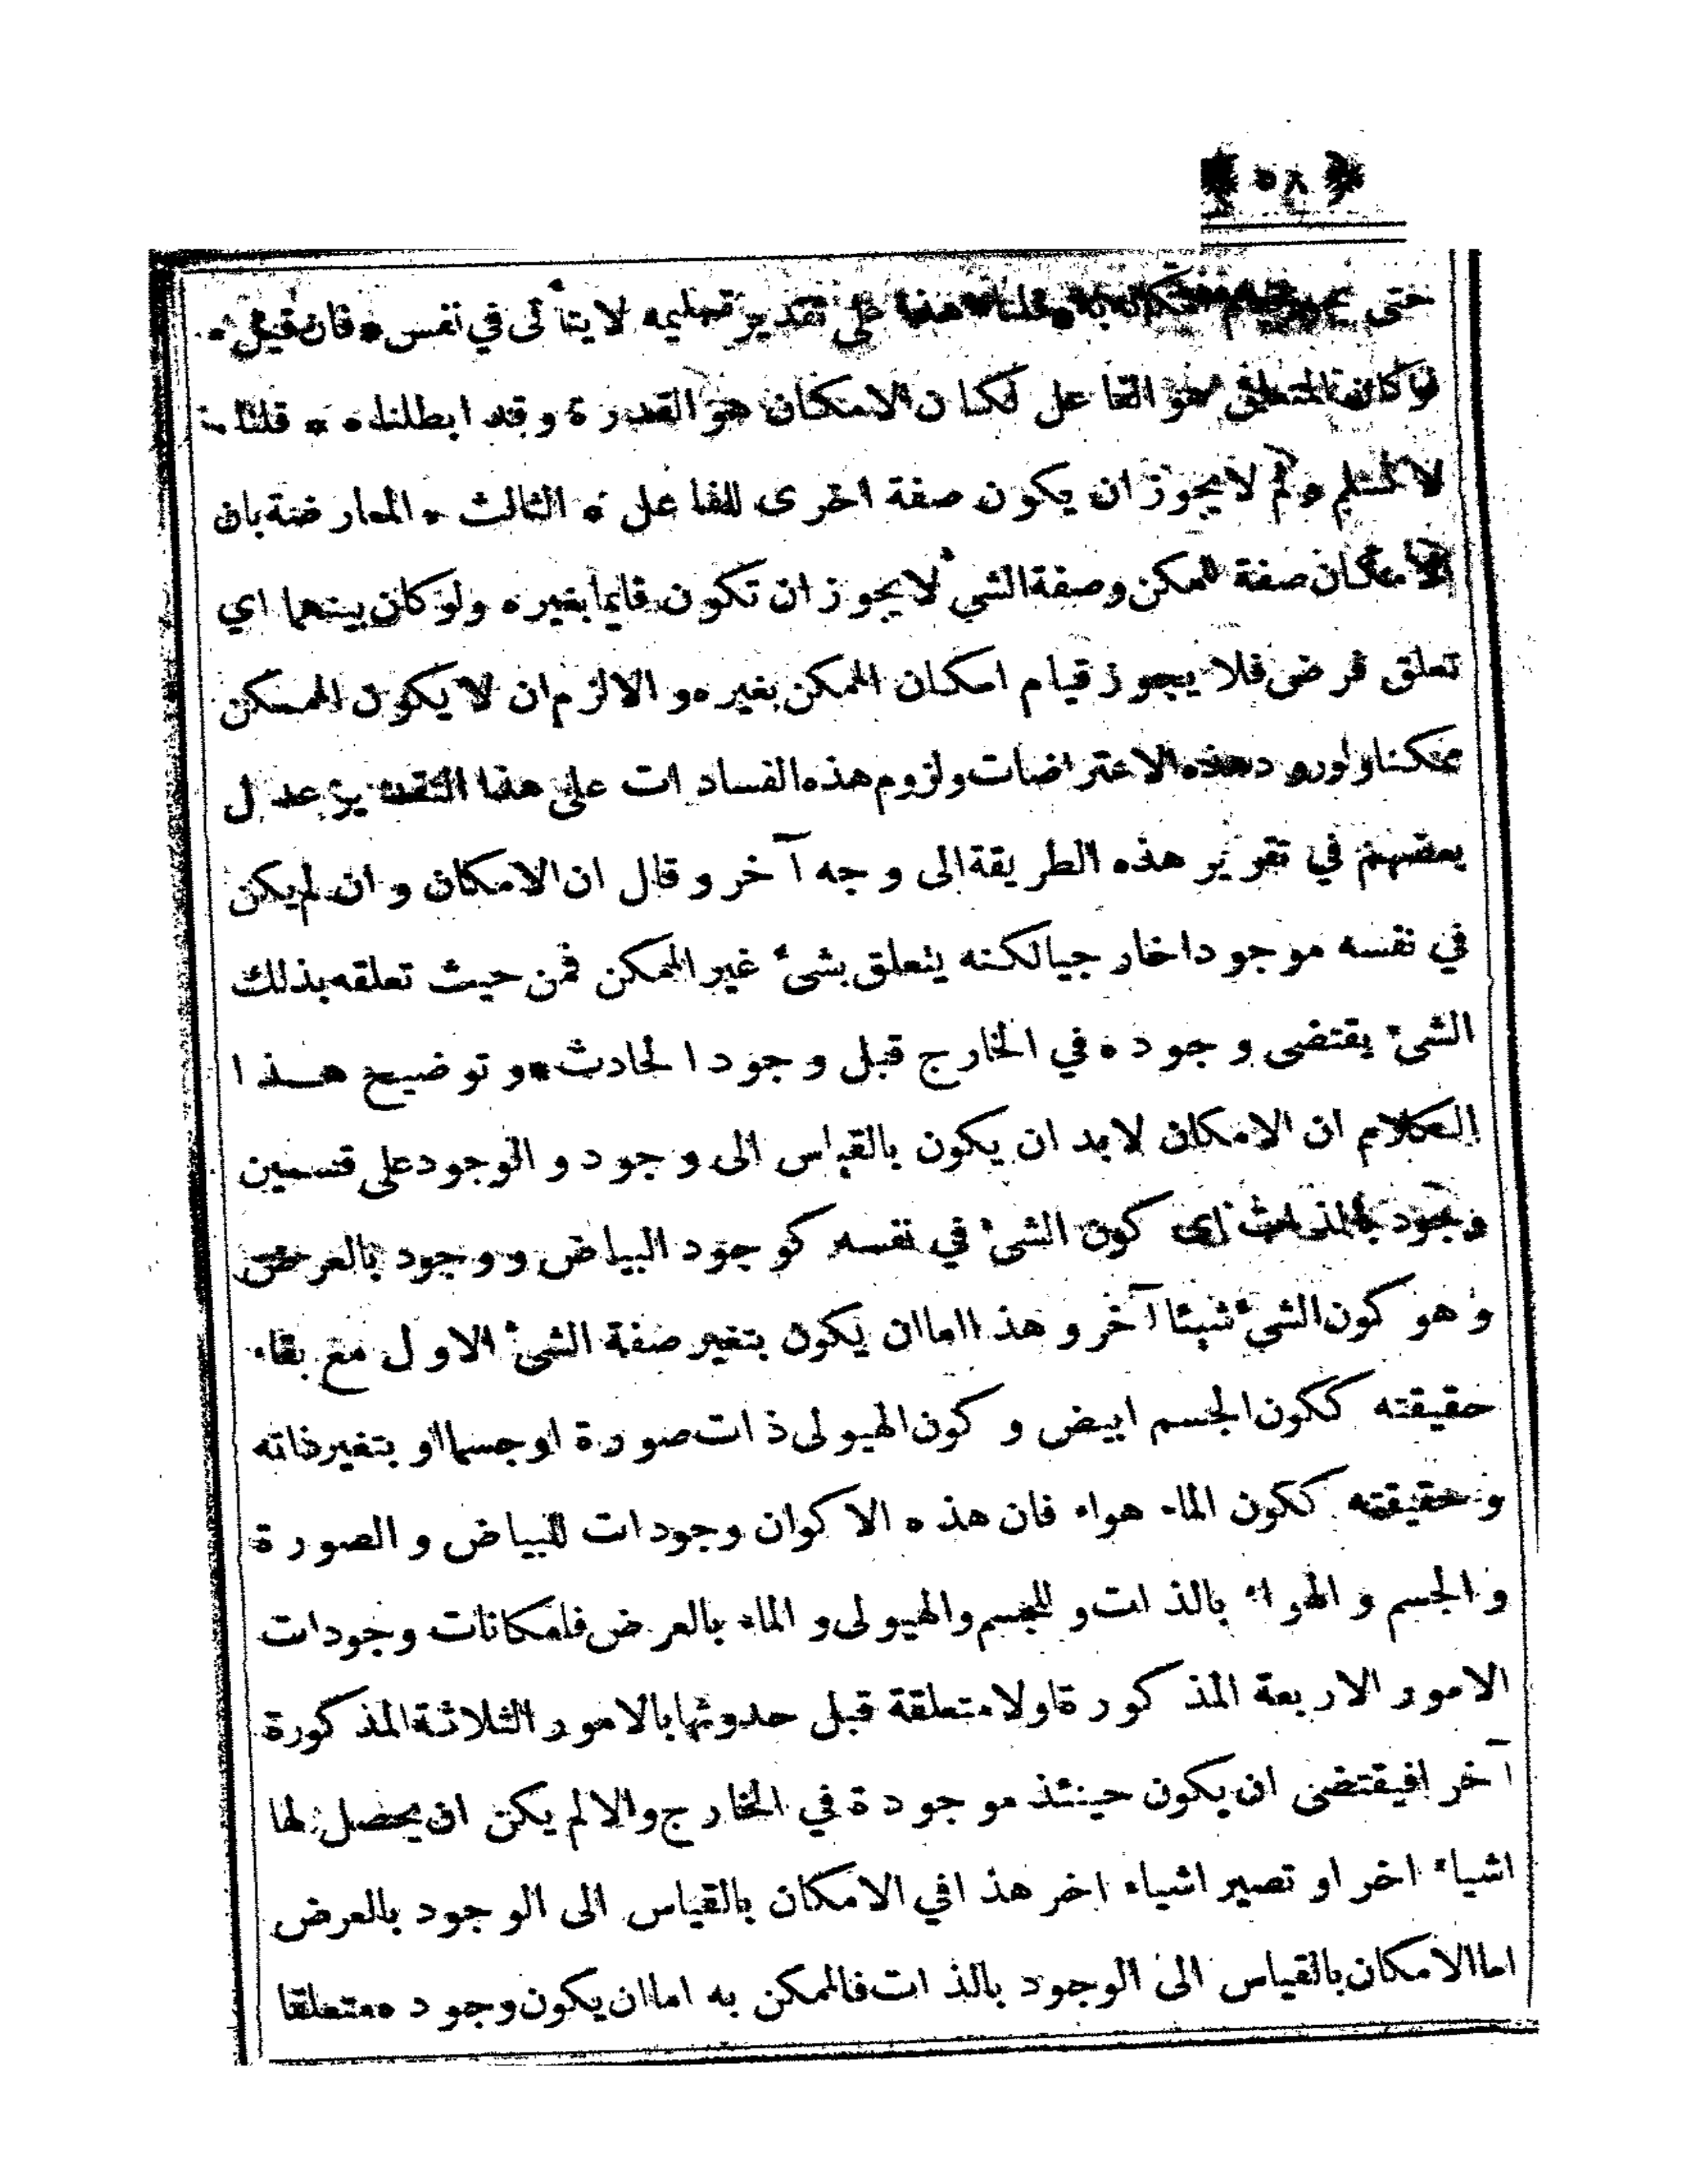 ﴿ ٥٨ ﴾
حتى قلنا * هذا على تقدير تسليمه لا يتأتى في نفس * فان قيل *
لو كان المتعلق هو الفاعل لكان الامكان هو القدرة وقد ابطلناه * قلنا *
لا نسلم ولم لا يجوز ان يكون صفة اخرى للفاعل * الثالث * المعارضة بان
الامكان صفة للمكن وصفة الشيء لا يجوز ان تكون قايما بغيره ولو كان بينهما اي
تعلق فرض فلا يجوز قيام امكان الممكن بغيره و الالزم ان لا يكون الممكن
ممكنا ولورود هذه الاعتراضات ولزوم هذه الفسادات على هذا التقدير عدل
بعضهم في تقرير هذه الطريقة الى وجه آخر وقال ان الامكان وان لم يكن
في نفسه موجودا خارجيا لكنه يتعلق بشئ غير الممكن فمن حيث تعلقه بذلك
الشئ يقتضى وجوده في الخارج قبل وجود الحادث * و توضيح هذا
الكلام ان الامكان لابد ان يكون بالقياس الى وجود و الوجود على قسمين
وجود بالذات اى كون الشئ في نفسه كوجود البياض ووجود بالعرض
وهو كون الشئ شيئا آخر و هذا اما ان يكون بتغير صفة الشئ الاول مع بقاء
حقيقته ككون الجسم ابيض و كون الهيولى ذات صورة او جسما او بتغير ذاته
وحقيقته ككون الماء هواء فان هذه الاكوان وجودات للبياض و الصورة
والجسم و الهواء بالذات و للجسم والهيولى و الماء بالعرض فامكانات وجودات
الامور الاربعة المذكورة اولا متعلقة قبل حدوثها بالامور الثلاثة المذكورة
آخرا فيقتضى ان يكون حينئذ موجودة في الخارج والالم يكن ان يحصل لها
اشياء اخر او تصير اشياء اخر هذا في الامكان بالقياس الى الوجود بالعرض
اما الامكان بالقياس الى الوجود بالذات فالممكن به اما ان يكون وجوده متعلقا